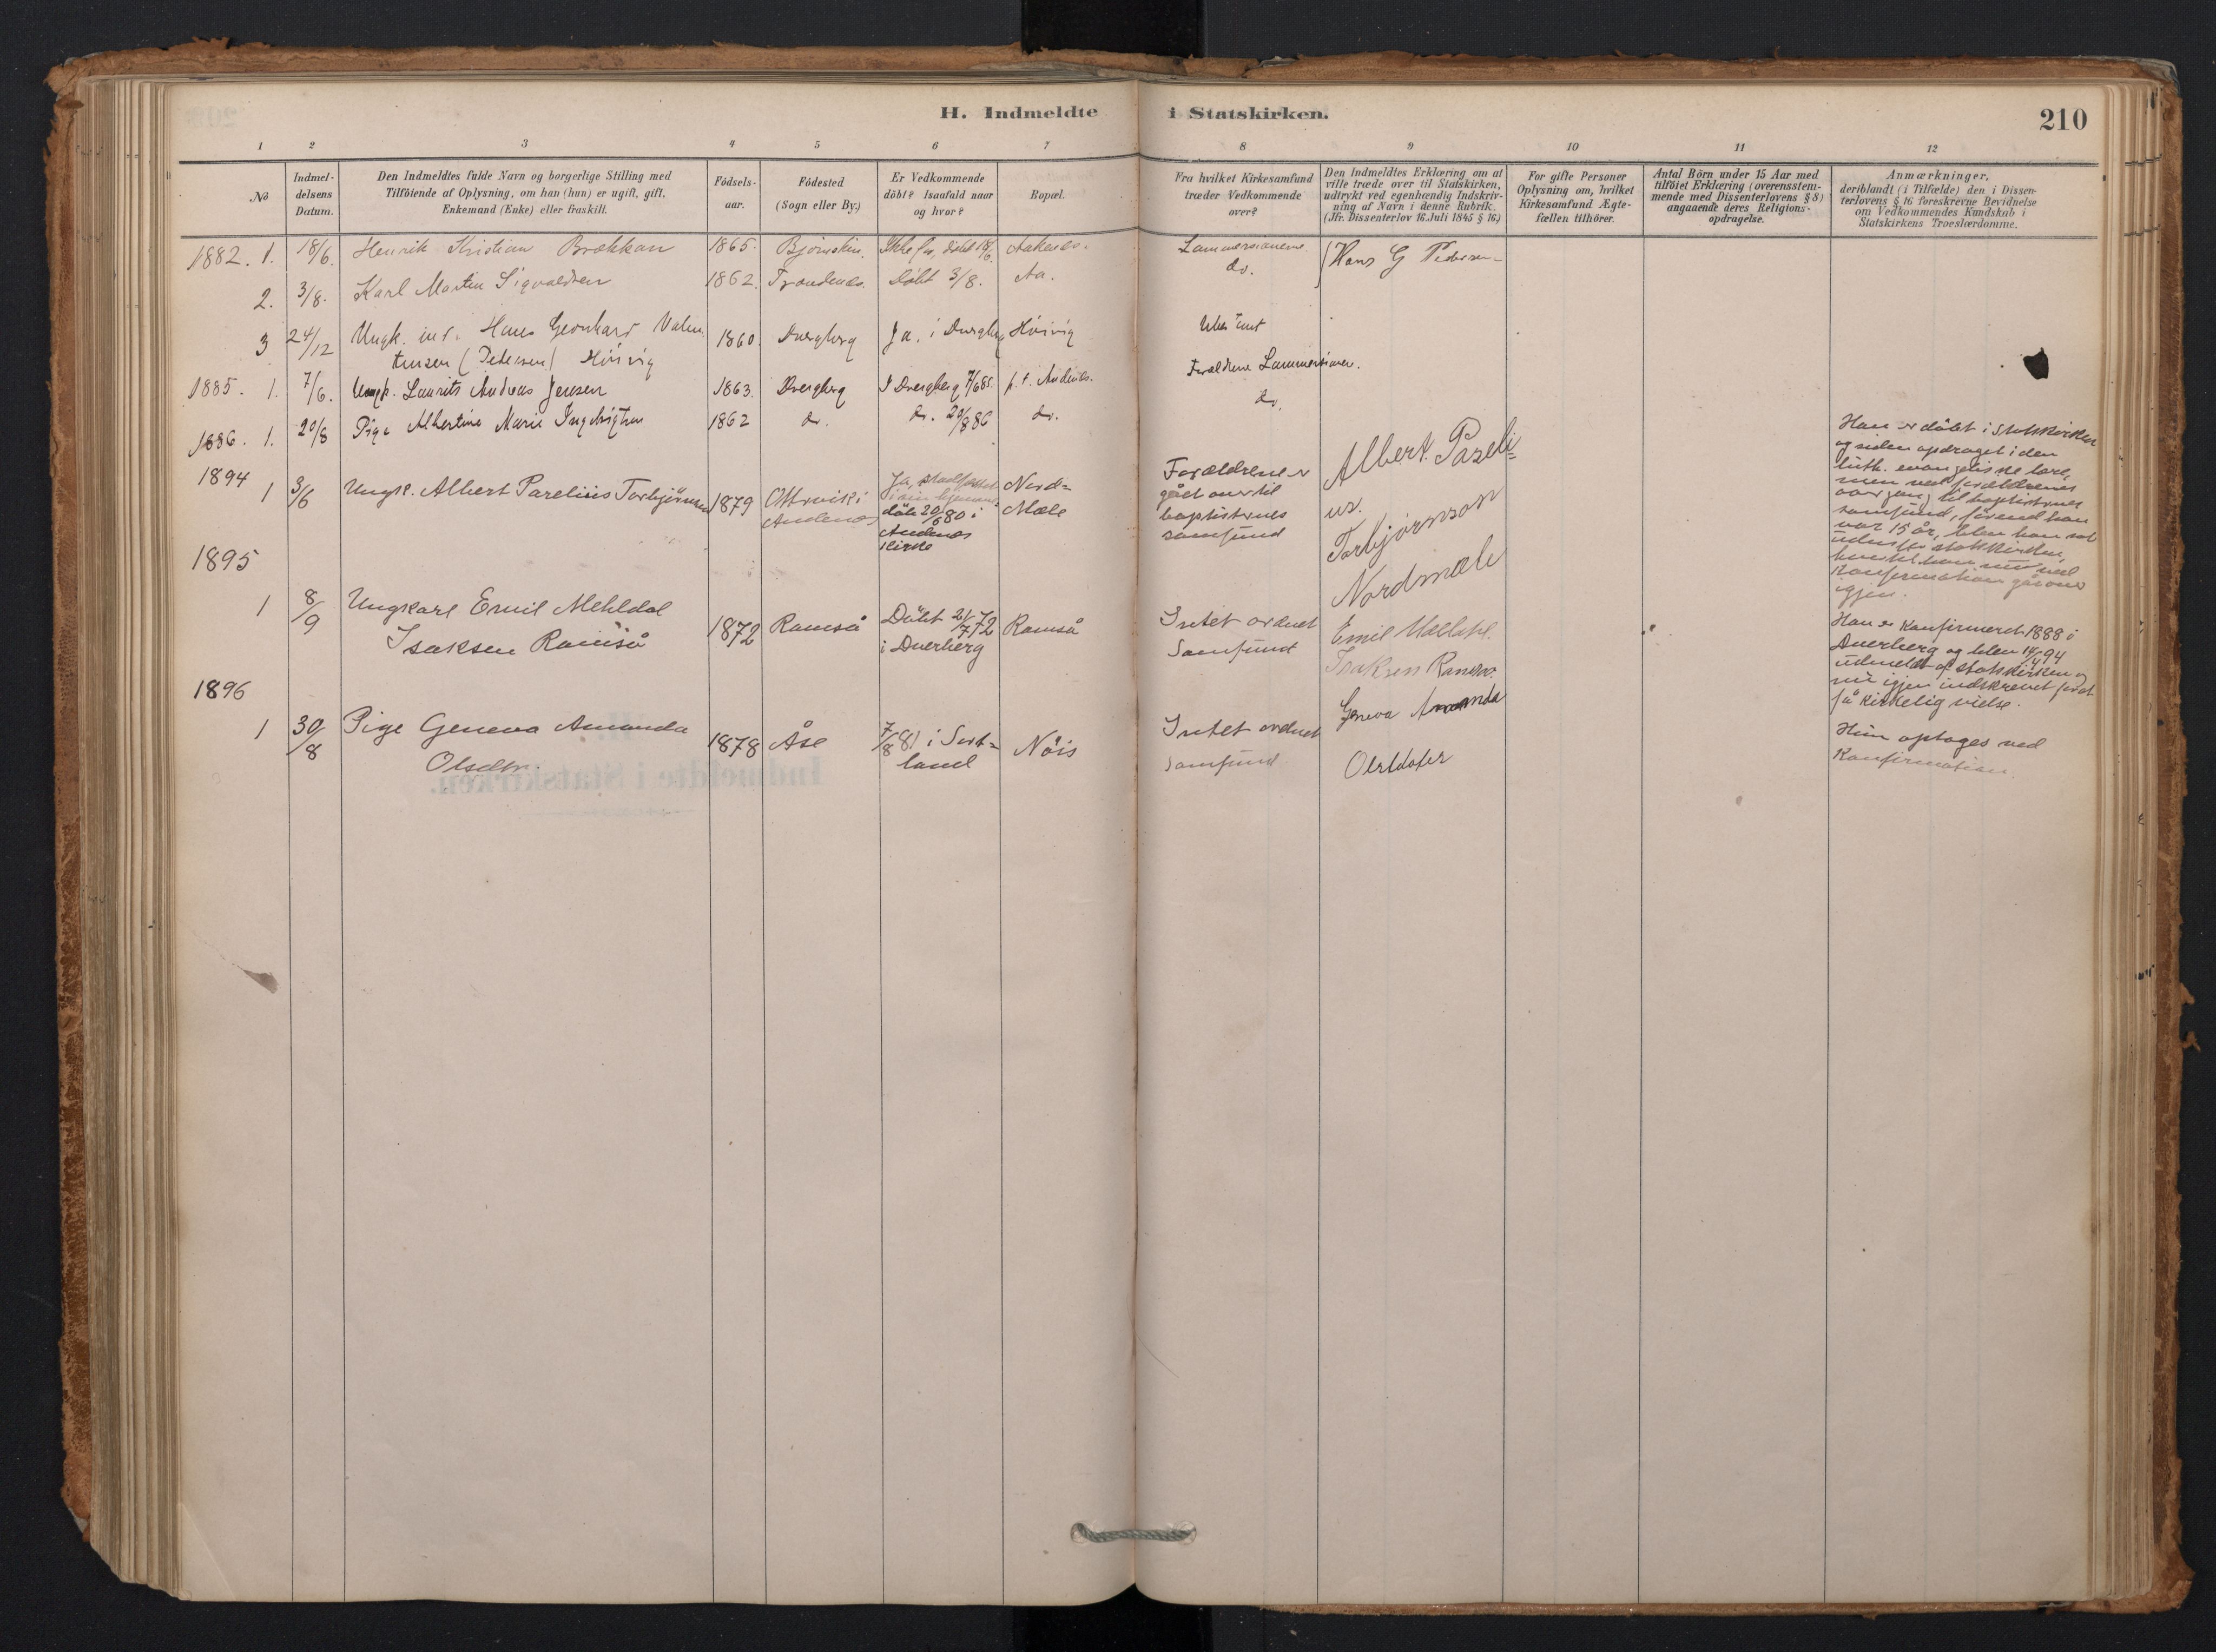 H. Indmeldte i Statskirken.
210
1 2 3 4 5 6 7 8 9 10 11 12
No
Indmel-
delsens
Datum.
Den Indmeldtes fulde Navn og borgerlige Stilling med
Tilföiende af Oplysning, om han (hun) er ugift, gift,
Enkemand (Enke) eller fraskilt.
Födsels-
aar.
Födested
(Sogn eller By.)
Er Vedkommende
döbt? Isaafald naar
og hvor?
Bopæl.
Fra hvilket Kirkesamfund
træder Vedkommende
over?
Den Indmeldtes Erklæring om at
ville træde over til Statskirken,
udtrykt ved egenhændig Indskriv-
ning af Navn i denne Rubrik.
(Jfr. Dissenterlov 16. Juli 1845 § 16.)
For gifte Personer
Oplysning om, hvilket
Kirkesamfund Ægte-
fællen tilhörer.
Antal Börn under 15 Aar med
tilföiet Erklæring (overensstem-
mende med Dissenterlovens § 8)
angaaende deres Religions-
opdragelse.
Anmærkninger,
deriblandt (i Tilfælde) den i Dissen-
terlovens § 16 foreskrevne Bevidnelse
om Vedkommendes Kundskab i
Statskirkens Troeslærdomme.
1882. 1. 18/6. Henrik Kristian Brækkan 1865. Bjørnskin. döbt 18/6. Lammersianerne. Hans G Pedersen
2. 3/8. Karl Martin Sigvaldsen 1862. Trondenæs. Döbt 3/8. Aa. do.
3 24/12 Ungk. Hans Leonhard 1860. Dverberg Ja, i Dverberg
(Pedersen)
Forældrene Lammersianer.
1885. 1. 7/6. Ungk. Laurits Andreas Jensen 1863. Dverberg I Dverberg 7/6 85. p.t. Andenes. do.
1886. 1. 20/8 Pige Albertine Marie 1862 do. do. 20/8 86 do.
1894
1 3/6 Ungk. Albert Parelius Torbjörnsen 1879 i
Andenes
Ja,
döbt 20/6 80 i
Andenes
Kirke
Nord=
Mæle
Forældrene er
gået over til
baptisternes
samfund
Albert Pareli=
us.
Torbjørnson
Nordmæle
Han er döbt i Statskirken
og siden opdraget i den
luth. evangeliske lære,
men ved forældrenes
overgang til baptisternes
samfund, förend han
var 15 år, blev han
statskirken,
ved
Konfirmation går over
igjen.
1895
1 8/9 Ungkarl Emil Mehldal
Isaksen Ramså
1872 Ramså
Döbt 21/7 72
i Dverberg
Ramså
Intet ordnet
Samfund
Emil Meldahl.
Isaksen Ramsaa.
Han er Konfirmeret 1888 i
Dverberg og blev 14/4 94
udmeldt af Statskirken og
nu igjen indskrevet for at
få kirkelig vielse.
1896
1 30/8 Pige Geneva Amanda
Olsdtr.
1878 Åse
7/8 81 i Sort=
land
Nöis
Intet ordnet
samfund
Geneva Amanda
Olsdater
Hun optages ved
Konfirmation.